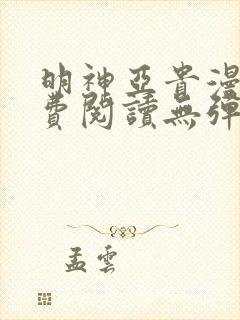 明神亞貴漫
費閱讀無彈
孟雲